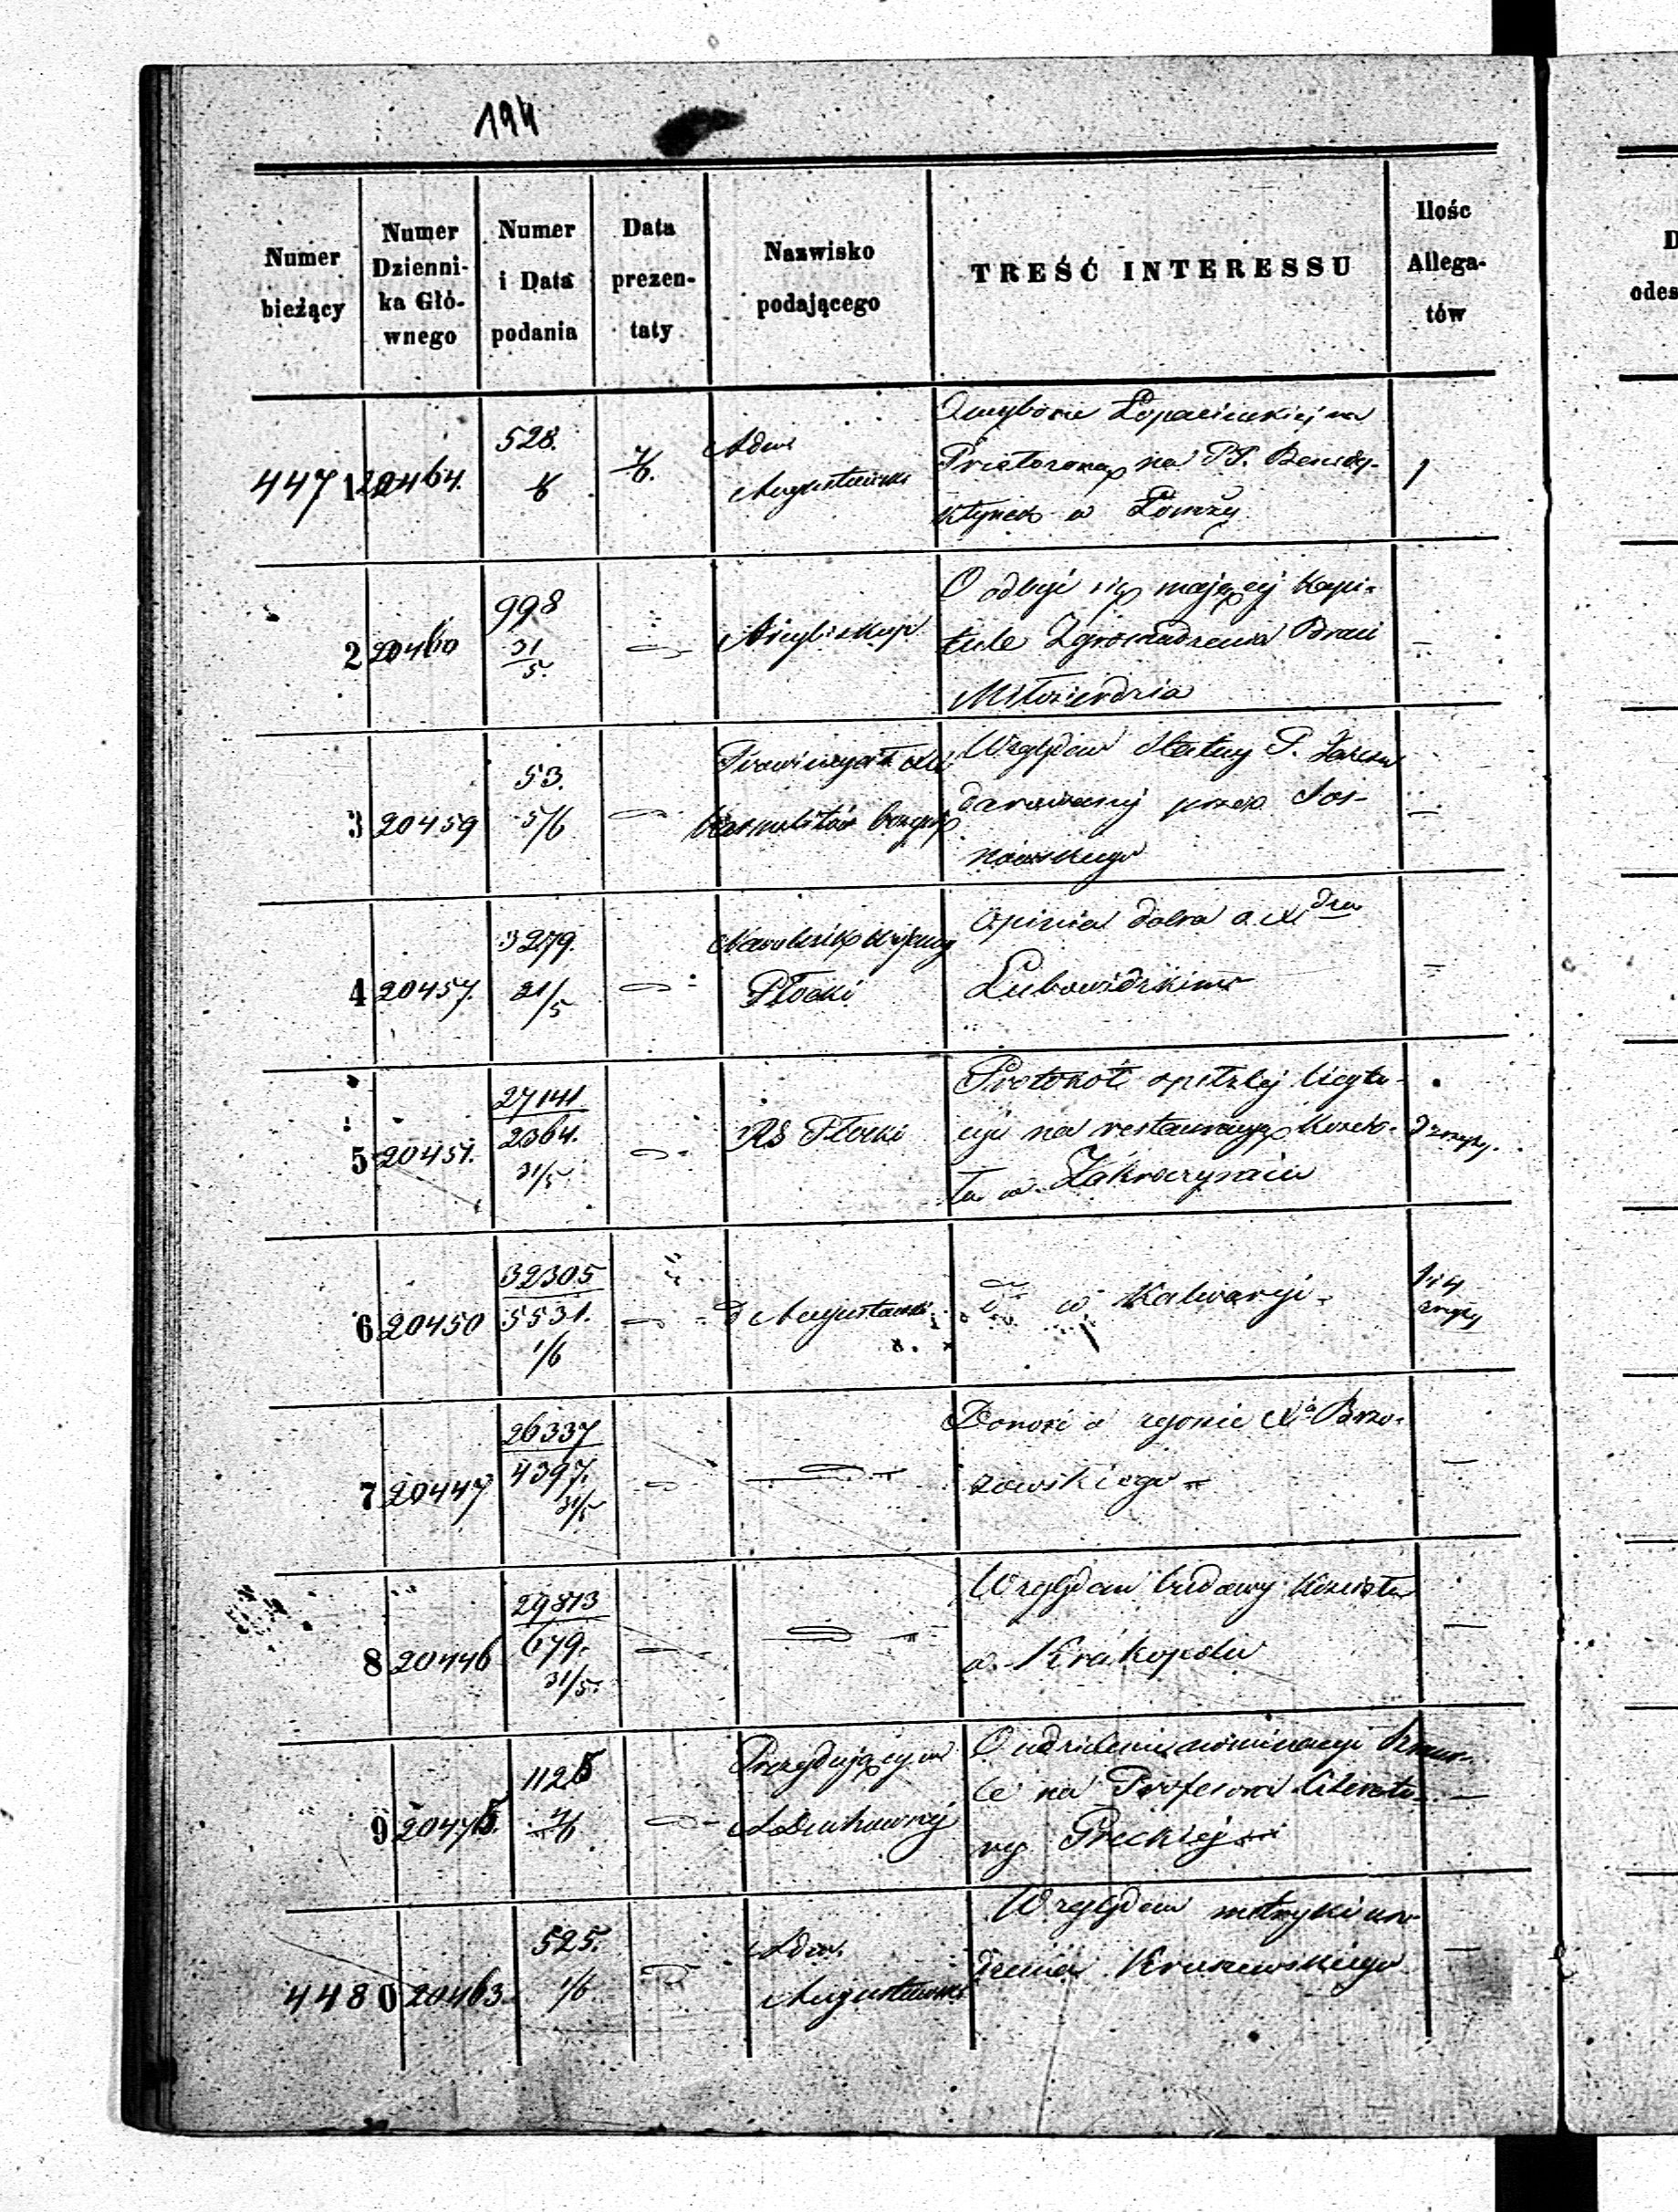 194
Numer bieżący
Numer Dzienni-ka Głó-wnego
Numer i Data podania
Data prezen-taty
Nazwisko podającego
TREŚĆ INTERESSU
Ilość Allega-tów
D
odes
4471 20464. 528. 7/6. Adm.
Augustowski
O wyborze Łopacińskiej na
Przełożoną na PP. Benedy-
ktynek w Łomży
1
2 20460 998 31/5. Arcybiskup
O odbyć się mającej Kapi-
tule Zgromadzenia Braci
Miłosierdzia
3 20459 53. 5/6
Karmelitów
Względem Statuy P. Jezusa
darowanej przez Sos-
nowskiego
4 20457. 3279. 31/5
Płocki
Opinia dobra o X
Lubowidzkim
5 20451. 27141 2364. 31/5 RG Płocki
Protokół spełzłej licyta-
cyi na restauracyę Kościo-
ła w Zakroczymiu
6 20450 32305 5531. 1/6 Augustowski
w Kalwaryi
7 20447 26337 4397. 31/5
Donosi o zgonie Xa Brzo-
zowskiego
8 20446 29813 679. 31/5.
Względem budowy Kościoła
w Krakopolu
9 20475. 1125 7/6 Prezydujący w
A. Duchownej
O udzielenie nominacyi
na Profesora Literatu-
ry Greckiej
4480 20463. 525. 1/6 Adm.
Augustowski
Względem metryki uro-
dzenia Kruszewskiego